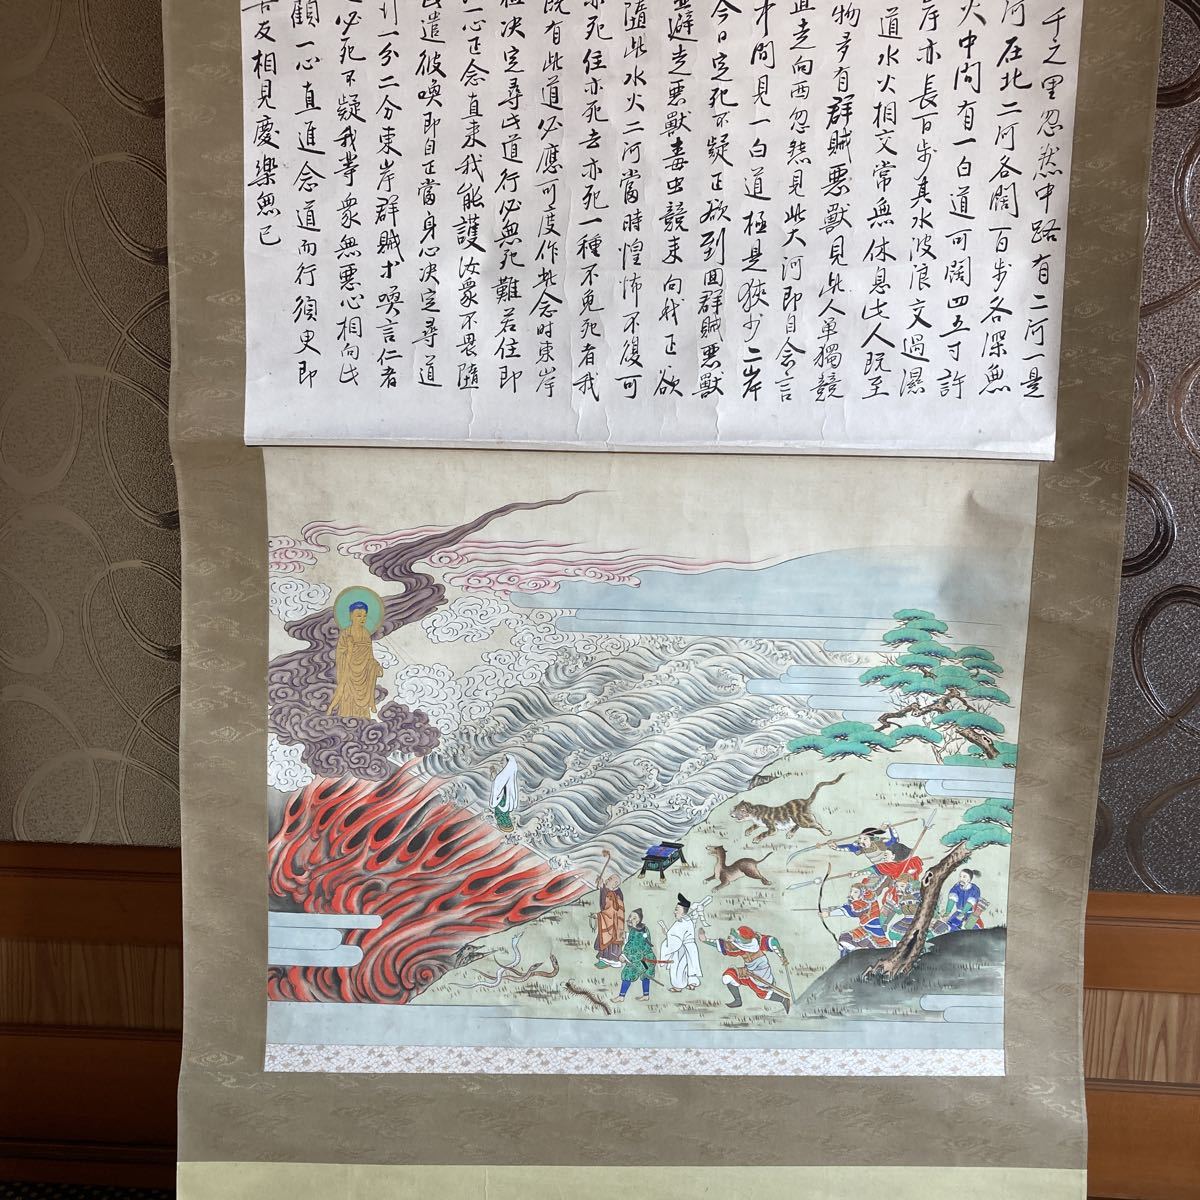 千之里忽然中路有二河一是
河在北二河各闊百步各深無
火中間有一白道可闊四五寸許
岸亦長百步其水波浪交過濕
道水火相交常無休息此人既至
物多有群賊惡獸見此人單獨競
直走向西忽然見此大河即自念言
中間見一白道極是狹少二岸
今日定死不疑正欲到回群賊惡獸
避走惡獸毒虫競来向我正欲
隨此水火二河當時惶怖不復可
亦死住亦死去亦死一種不免死者我
既有此道必應可度作此念时東岸
决定尋此道行必無死難若住即
一心正念直来我能護汝衆不畏隨
遣彼喚即自正當身心决定尋道
行一分二分東岸群賊才喚言仁者
必死不疑我等衆無惡心相向此
顧一心直進念道而行須臾即
善友相見慶樂無已